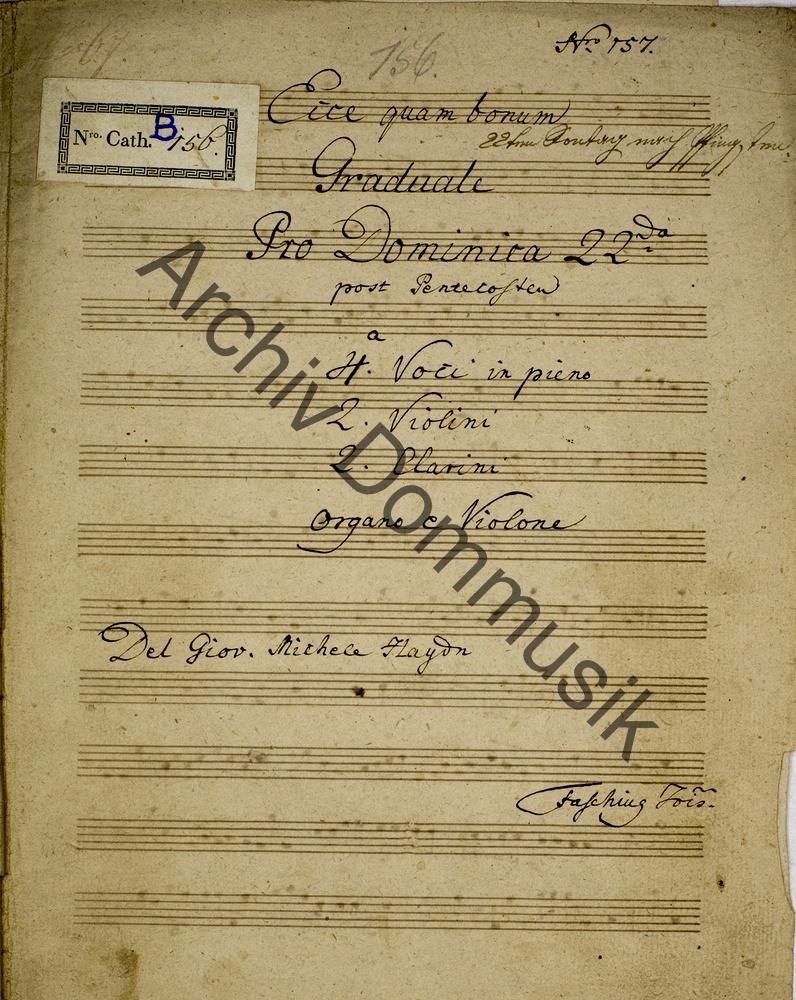 67.
156.
Nro 157.
Nro. Cath. B 156.
Ecce quam bonum
22ten Sontag nach Pfingsten
Graduale
Pro Dominica 22da
post Pentecosten
a
4. Voci in pieno
2. Violini
2. Clarini
Organo e Violone
Del Giov. Michele Haydn
Fasching Jois.
Archiv Dommusik